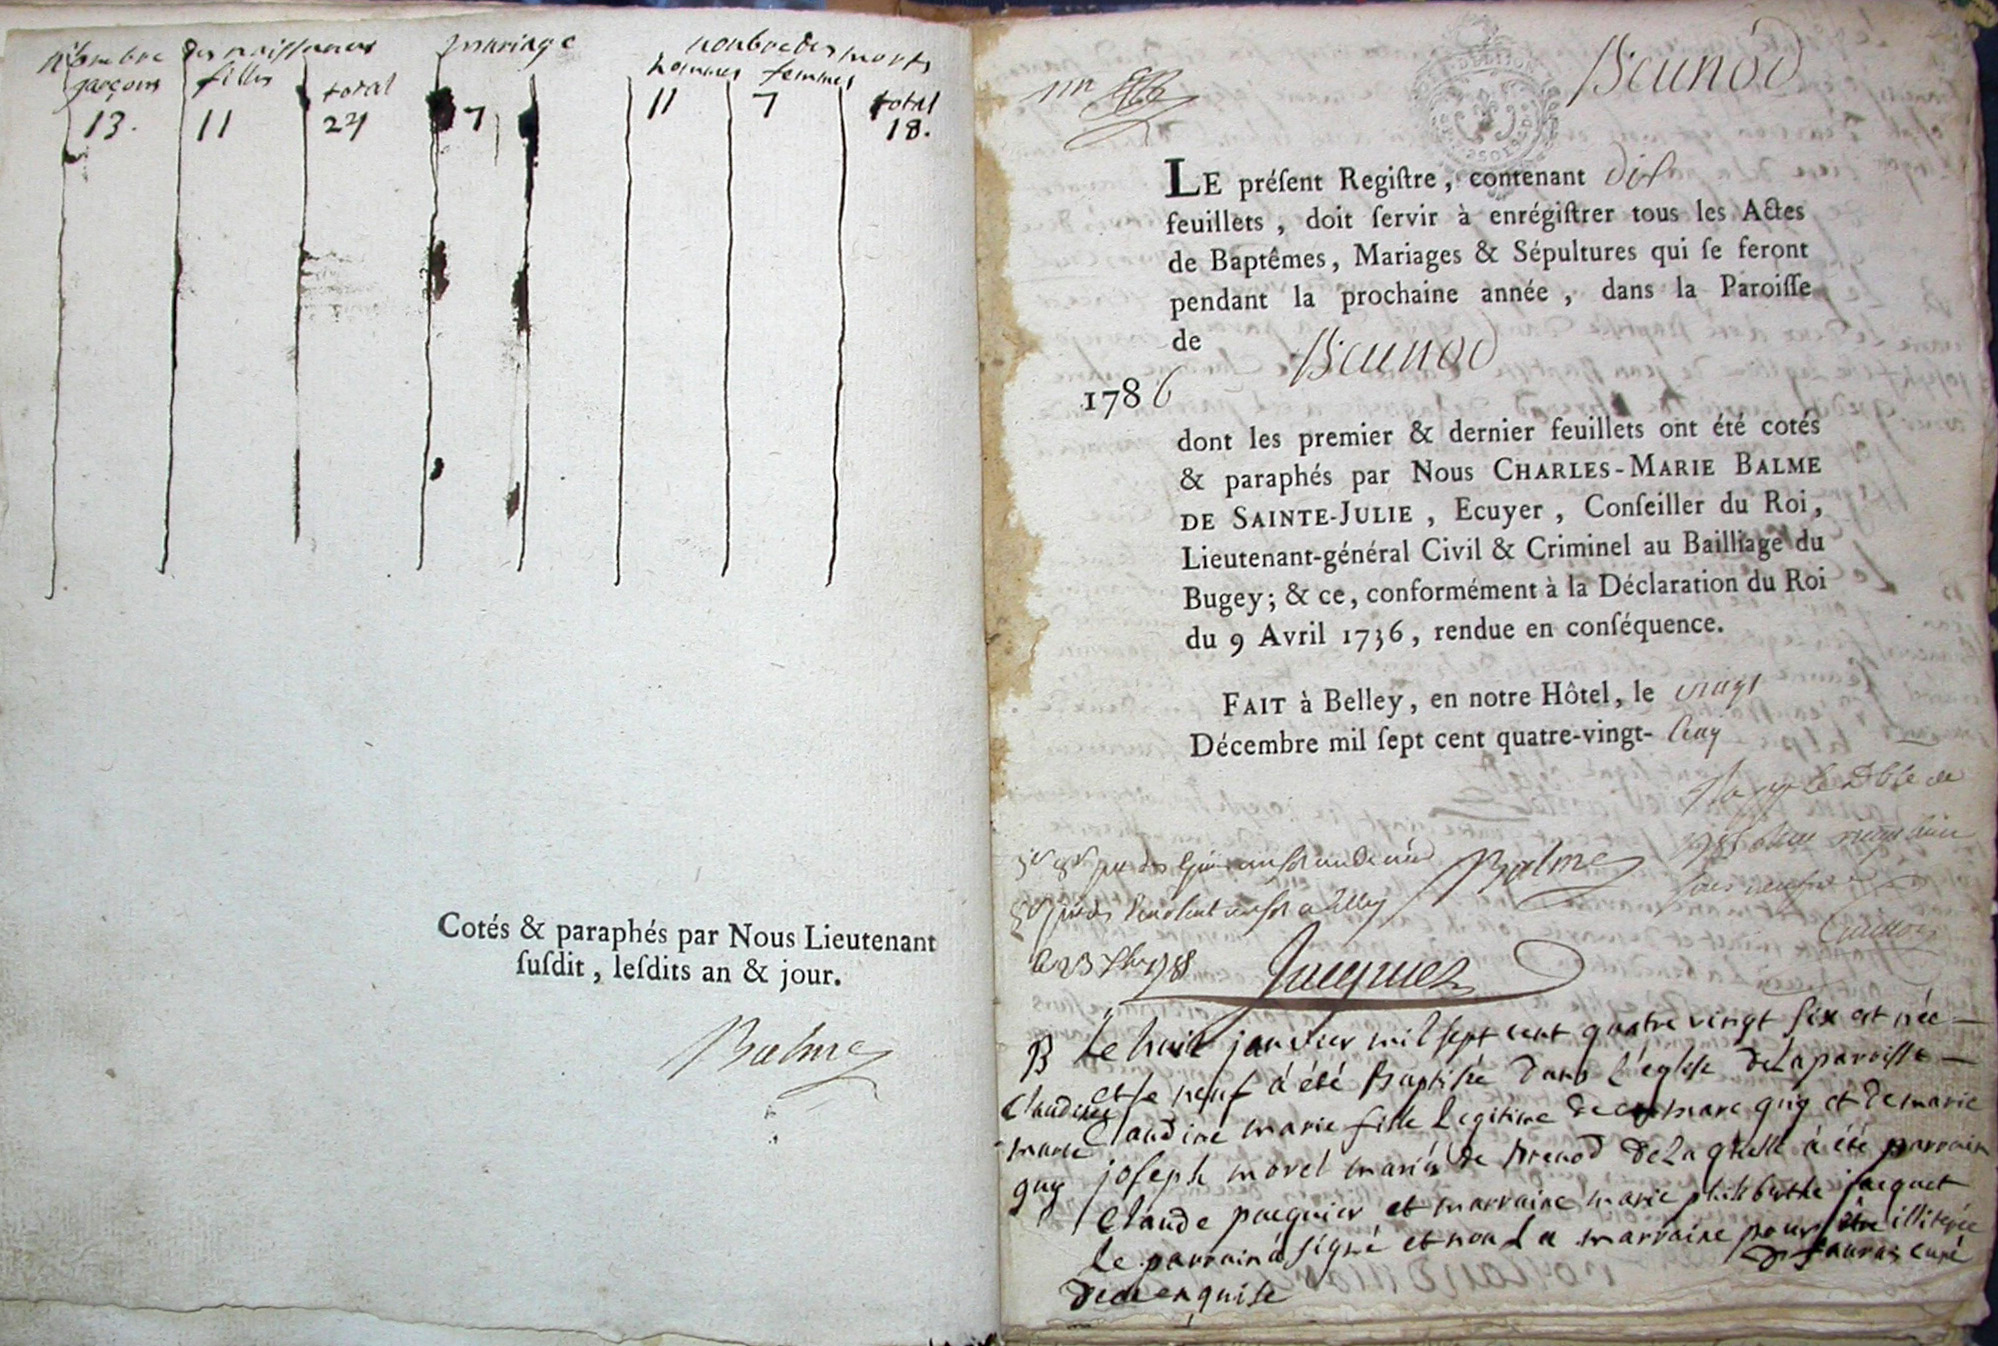 nombre des naissances mariage nonbre des morts
garçons filles total hommes femmes total
13. 11 24 7 11 7 18.
Cotés & paraphés par Nous Lieutenant
ſuſdit, leſdits an & jour.
Balme
Brénod
LE préſent Regiſtre, contenant dix
feuillets, doit ſervir à enrégiſtrer tous les Actes
de Baptêmes, Mariages & Sépultures qui ſe feront
pendant la prochaine année, dans la Paroiſſe
de Brénod
1786
dont les premier & dernier feuillets ont été cotés
& paraphés par Nous CHARLES-MARIE BALME
DE SAINTE-JULIE, Ecuyer, Conſeiller du Roi,
Lieutenant-général Civil & Criminel au Bailliage du
Bugey; & ce, conformément à la Déclaration du Roi
du 9 Avril 1736, rendue en conſéquence.
FAIT à Belley, en notre Hôtel, le vingt
Décembre mil ſept cent quatre-vingt- cinq
Balme
Jacquet
B
Claudine
marie
guy
Le huit janvier mil sept cent quatre vingt six est née
et le neuf à été baptisée dans l'église de la paroisse
Claudine marie fille legitime de marc guy et de marie
joseph morel mariés de brenod de la quelle à été parrain
Claude pacquier et marraine marie philiberthe jacquet
le parrain à signé et non la marraine pour être illiterée
de ce enquise curé